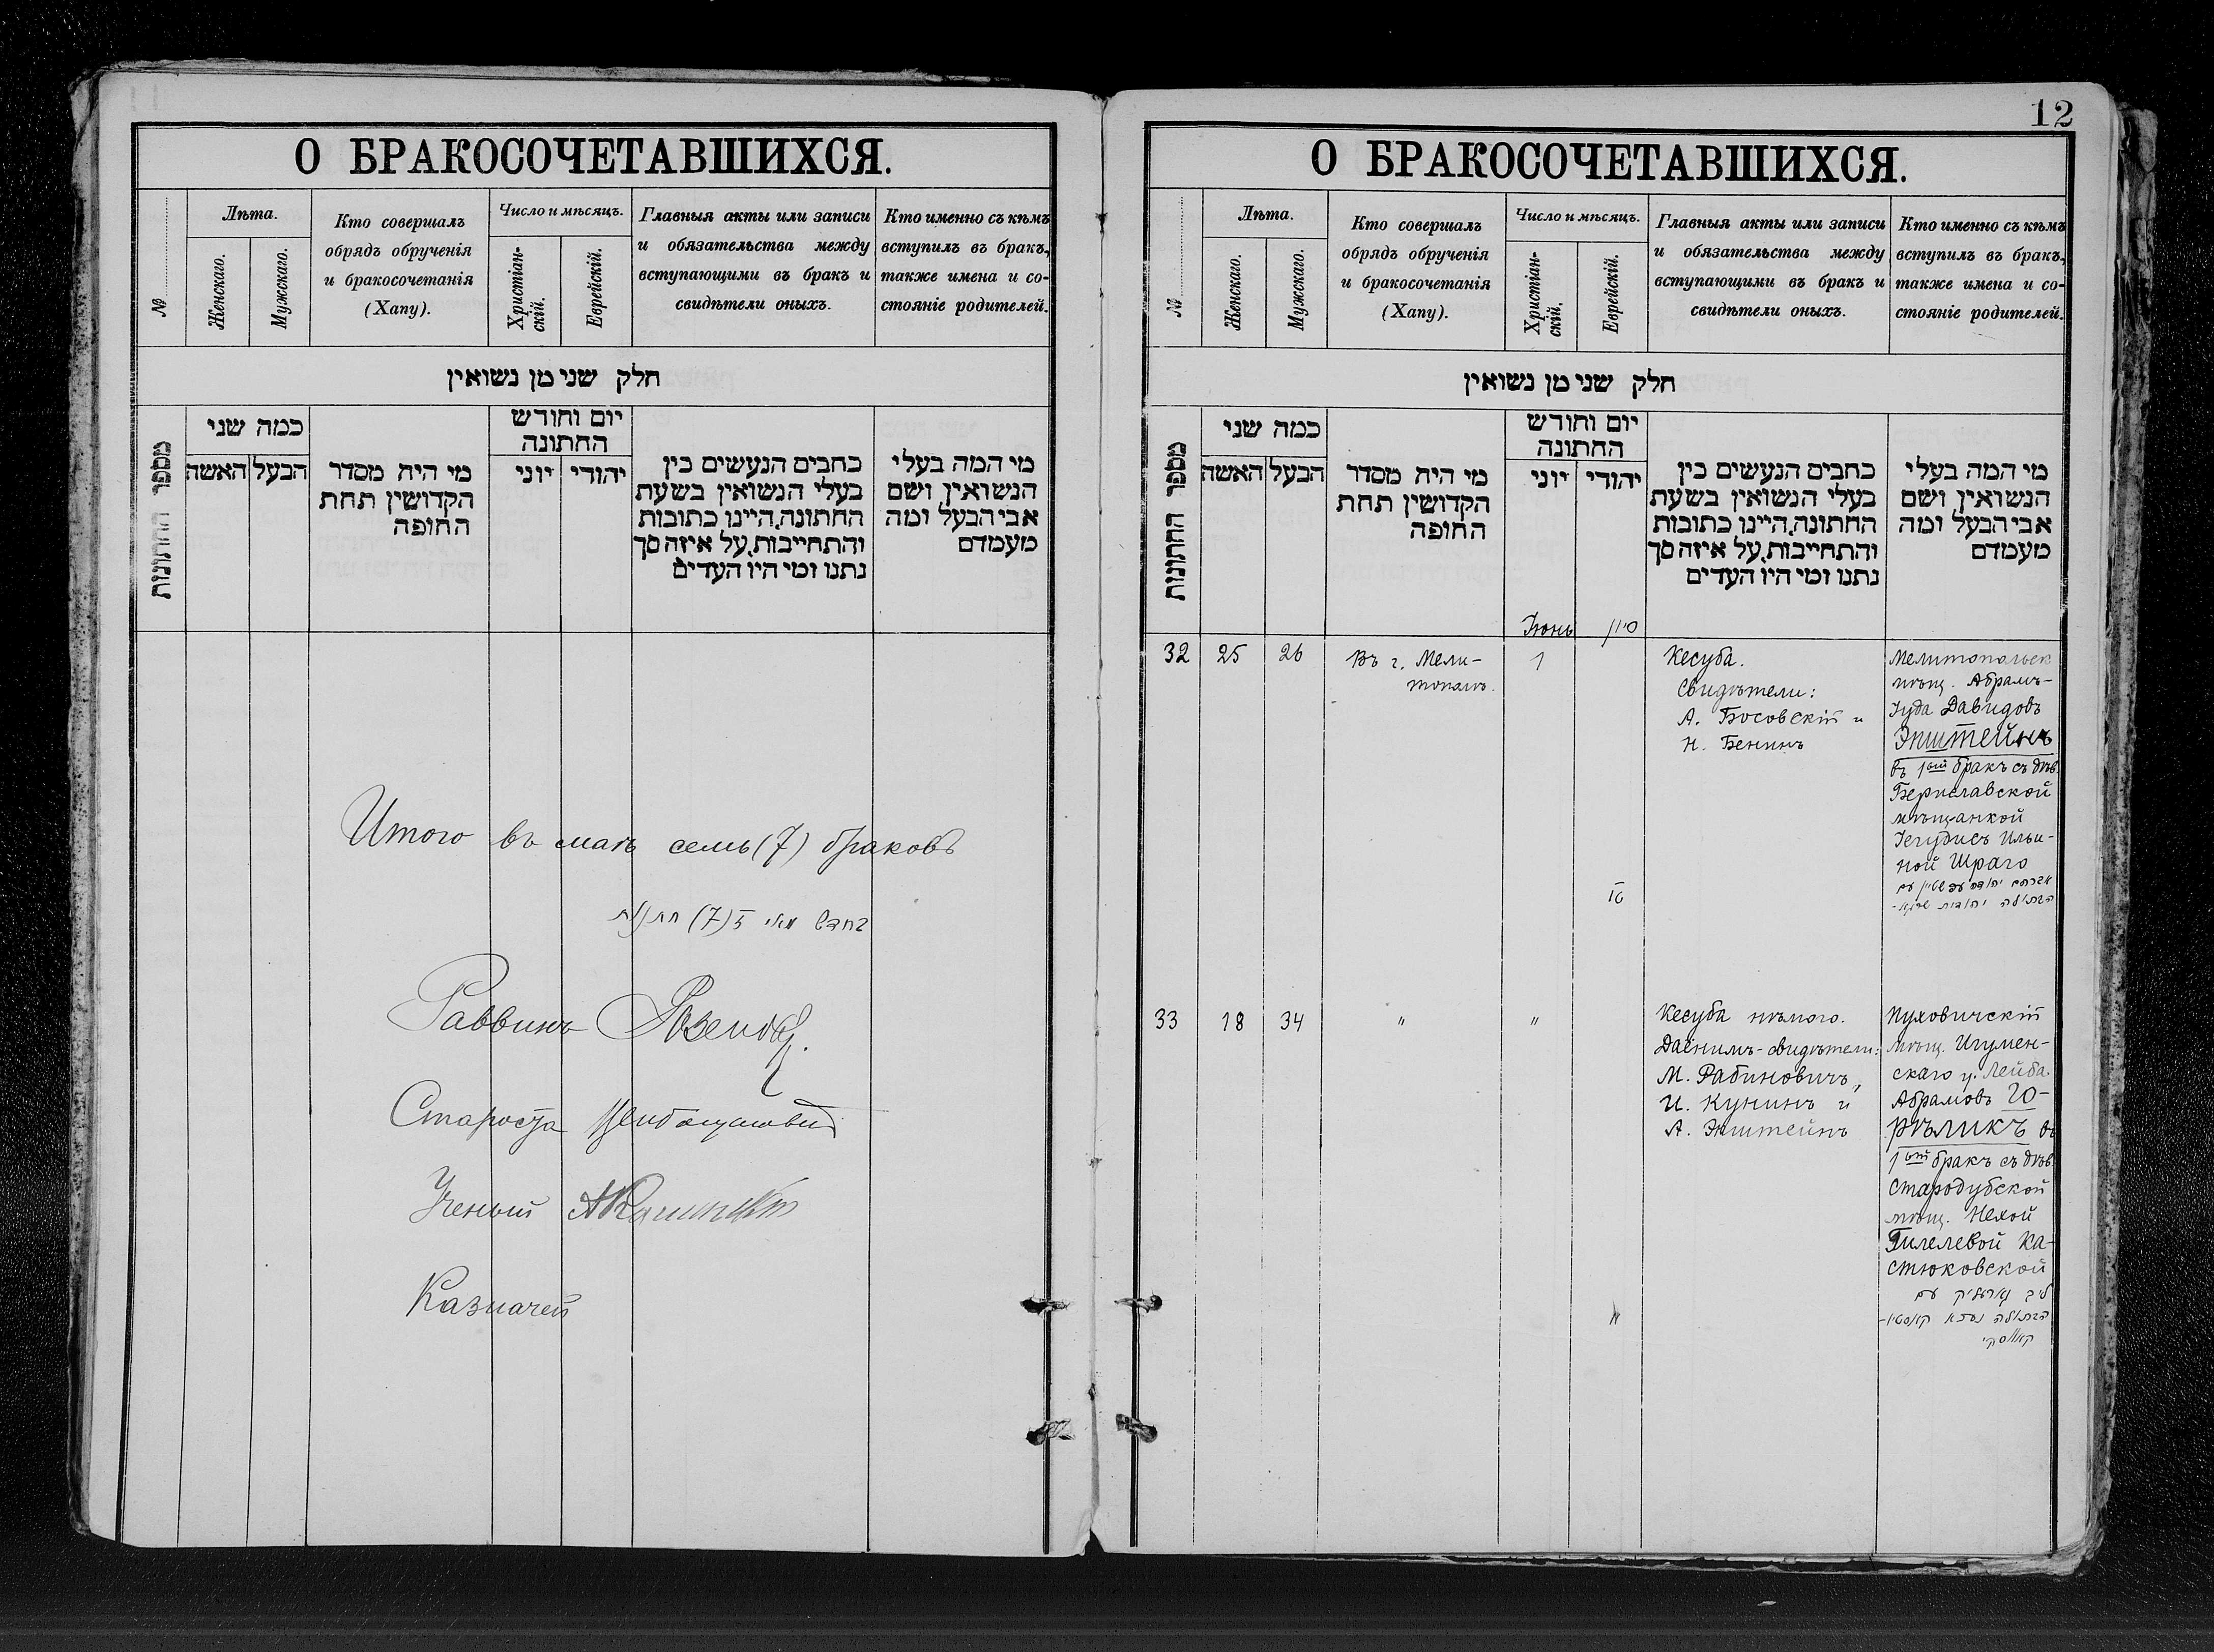 О БРАКОСОЧЕТАВШИХСЯ.
№
Лѣта.
Женскаго.
Мужскаго.
Кто совершалъ
обрядъ обрученія
и бракосочетанія
(Хапу).
Число и мѣсяцъ.
Христіан-
скій.
Еврейскій.
Главныя акты или записи
и обязательства между
вступающими въ бракъ и
свидѣтели оныхъ.
Кто именно съ кѣмъ
вступилъ въ бракъ,
также имена и со-
стояніе родителей.
חלק שני מן נשואין
מספר החתונות
כמה שני
האשה
הבעל
מי היה מסדר
הקדושין תחת
החופה
יום וחודש
החתונה
יוני
יהודי
כתבים הנעשים בין
בעלי הנשואין בשעת
החתונה, היינו כתובות
והתחייבות, על איזה סך
נתנו ומי היו העדים
מי המה בעלי
הנשואין ושם
אבי הבעל ומה
מעמדם
Итого въ маѣ семь (7) браковъ
(7)
Раввинъ
Староста
Ученый
Казначей
12
О БРАКОСОЧЕТАВШИХСЯ.
№
Лѣта.
Женскаго.
Мужскаго.
Кто совершалъ
обрядъ обрученія
и бракосочетанія
(Хапу).
Число и мѣсяцъ.
Христіан-
скій.
Еврейскій.
Главныя акты или записи
и обязательства между
вступающими въ бракъ и
свидѣтели оныхъ.
Кто именно съ кѣмъ
вступилъ въ бракъ,
также имена и со-
стояніе родителей.
חלק שני מן נשואין
מספר החתונות
כמה שני
האשה
הבעל
מי היה מסדר
הקדושין תחת
החופה
יום וחודש
החתונה
יוני
יהודי
כתבים הנעשים בין
בעלי הנשואין בשעת
החתונה, היינו כתובות
והתחייבות, על איזה סך
נתנו ומי היו העדים
מי המה בעלי
הנשואין ושם
אבי הבעל ומה
מעמדם
Іюнь
סיון
32
25
26
Въ г. Мели-
тополѣ.
1
Кесуба.
Свидѣтели:
А. Босовскій и
Н. Бенинъ
Мелитопольск
мѣщ. Абрамъ-
Іуда Давидовъ
Эпштейнъ
въ 1ый бракъ съ дѣв.
Бериславской
мѣщанкой
Іегудисъ Ильи-
ной Шраго
אברהם יהודה עפשטיין עם
הבתולה יהודית
33
18
34
"
"
"
Кесуба нѣмого.
Даенимъ-свидѣтели:
М. Рабиновичъ,
И. Кунинъ и
А. Эпштейнъ
Пуховичскій
мѣщ. Игумен-
скаго у. Лейба
Абрамовъ Го-
рѣликъ въ
1ый бракъ съ дѣв.
Стародубской
мѣщ. Нехой
Гилелевой Ка-
стюковской
ליב גארעליק עם
הבתולה נחא קאסטיו-
קאווסקי